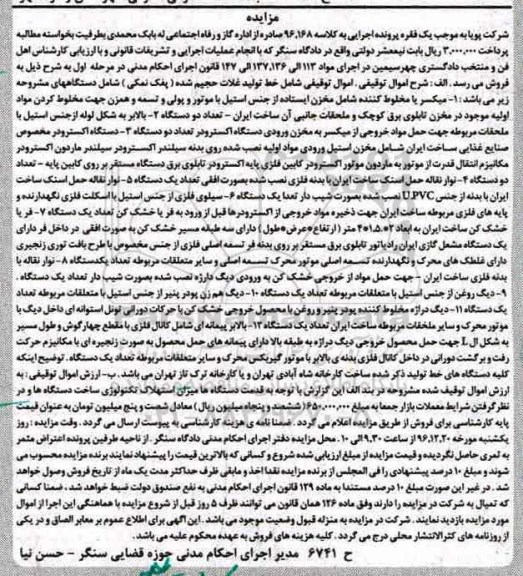 مزایده
شرکت پویا به موجب یک فقره پرونده اجرایی به کلاسه ۹۶٬۱۶۸ صادره از اداره گاز و رفاه اجتماعی له بابک محمدی بطرفیت بخواسته مطالبه
پرداخت ۳٬۰۰۰٬۰۰۰ ریال بابت نیمعشر دولتی واقع در دادگاه سنگر که با انجام عملیات اجرایی و تشریفات قانونی و با ارزیابی کارشناس اهل
فن و منتخب دادگستری چهرسیمین در اجرای مواد ۱۱۳ الی ۱۳۶٬۱۳۷ الی ۱۴۷ قانون اجرای احکام مدنی در مرحله اول به شرح ذیل به
فروش می رسد . الف : شرح اموال توقیفی . اموال توقیفی شامل خط تولید غلات حجیم شده ( پفک نمکی ) شامل دستگاههای مشروحه
زیر می باشد : ۱- میکسر یا مخلوط کننده شامل مخزن ایستاده از جنس استیل با موتور و پولی و تسمه و همزن جهت مخلوط کردن مواد
اولیه موجود در مخزن تابلوی برق کوچک و ملحقات جانبی آن ساخت ایران - تعداد دو دستگاه ۲- بالابر به شکل لوله از جنس استیل با
ملحقات مربوطه جهت حمل مواد خروجی از میکسر به مخزن ورودی دستگاه اکسترودر تعداد دو دستگاه ۳- دستگاه اکسترودر مخصوص
صنایع غذایی ساخت ایران شامل مخزن استیل ورودی مواد اولیه نصب شده روی بدنه سیلندر اکسترودر سیلندر ماردون اکسترودر
مکانیزم انتقال قدرت از موتور به ماردون موتور اکسترودر کابین فلزی پایه اکسترودر تابلوی برق دستگاه مستقر بر روی کابین پایه - تعداد
دو دستگاه ۴- نوار نقاله حمل اسنک ساخت ایران با بدنه فلزی نصب شده بصورت افقی تعداد یک دستگاه ۵- نوار نقاله حمل اسنک ساخت
ایران با بدنه از جنس U.PVC نصب شده بصورت شیب دار تعدا یک دستگاه ۶- سیلوی فلزی از جنس استیل با اسکلت فلزی نگهدارنده و
پایه های فلزی مربوطه ساخت ایران جهت ذخیره مواد خروجی از اکسترودرها قبل از ورود به فر یا خشک کن تعداد یک دستگاه ۷- فر یا
خشک کن ساخت ایران به ابعاد ۴۰۱٫۵۰۲ متر ( ارتفاع*عرض*طول ) دارای سه طبقه مسیر خشک کن به صورت افقی در داخل فر دارای
یک دستگاه مشعل گازی ایران رادیاتور تابلوی برق مستقر بر روی بدنه فر تسمه اصلی فلزی از جنس مخصوص با طرح بافت توری زنجیری
دارای غلطک های محرک و نگهدارنده تسمه اصلی موتور محرک تسمه اصلی و سایر متعلقات مربوطه تعداد یکدستگاه ۸- نوار نقاله با
بدنه فلزی ساخت ایران - جهت حمل مواد از خروجی خشک کن به ورودی دیگ دراژه نصب شده بصورت شیب دار تعداد یک دستگاه .
۹- دیگ روغن از جنس استیل با متعلقات مربوطه تعداد یک دستگاه ۱۰- دیگ هم زن پودر پنیر از جنس استیل با متعلقات مربوطه تعداد
یک دستگاه ۱۱- دیگ دراژه مخلوط کننده پودر پنیر و روغن با محصول خروجی خشک کن با حرکات دورانی تونل استوانه ای داخل دیگ با
موتور محرک و سایر ملحقات مربوطه ساخت ایران تعداد یک دستگاه ۱۲- بالابر پیمانه ای شامل کانال فلزی با مقطع چهارگوش و طول مسیر
به شکل L جهت حمل محصول خروجی دیگ دراژه به طبقه بالا دارای پیمانه های حمل محصول به صورت زنجیره ای با مکانیزم حرکت
رفت و برگشت دورانی در داخل کانال فلزی بدنه ی بالابر با موتور گیربکس محرک و سایر متعلقات مربوطه تعداد یک دستگاه . توضیح اینکه
کلیه دستگاه های خط تولید ذکر شده ساخت کارخانه شاه آبادی تهران و یا کارخانه ترک تاز تهران می باشد . ب- ارزش اموال توقیفی : به
ارزش اموال توقیف شده مشروحه در بند الف این گزارش با توجه به قدمت دستگاه ها میزان استهلاک تکنولوژی ساخت دستگاه ها و در
نظر گرفتن شرایط معاملات بازار جمعا به مبلغ ۶۵۰٬۰۰۰٬۰۰۰ ( ششصد و پنجاه میلیون ریال ) معادل شصت و پنج میلیون تومان به عنوان قیمت
پایه کارشناسی برای فروش از طریق مزایده اعلام می گردد . ضمنا نامه ی هزینه کارشناسی به پیوست ارسال می گردد . وقت مزایده : روز
یکشنبه مورخه ۹۶٫۱۲٫۲۰ از ساعت ۹٫۳۰ الی ۱۰ . محل مزایده دفتر اجرای احکام مدنی دادگاه سنگر . از ناحیه طرفین پرونده اعتراض مثمر
به ثمری حاصل نگردیده و قیمت مزایده از مبلغ ارزیابی شده شروع و کسانی که بالاترین قیمت را پیشنهاد نمایند برنده مزایده محسوب می
شوند و مبلغ ۱۰ درصد پیشنهادی را فی المجلس از برنده مزایده نقدا اخذ و مابقی ظرف حداکثر مدت یک ماه از تاریخ فروش وصول خواهد
شد . در غیر این صورت مبلغ ۱۰ درصد مستندا به ماده ۱۲۹ قانون اجرای احکام مدنی به نفع صندوق دولت ضبط خواهد شد ، ضمنا کسانی
که تمیال به شرکت در مزایده را دارند وفق ماده ۱۲۶ همان قانون می توانند ظرف ۵ روز قبل از شروع مزایده با هماهنگی این اجرا از اموال
مورد مزایده بازدید نمایند . شرکت در مزایده به منزله قبول وضعیت موجود می باشد . این آگهی برای اطلاع عموم بر معابر الصاق و در یکی
از روزنامه های کثرالانتشار محلی درج می گردد . کلیه هزینه های فروش به عهده محکوم علیه می باشد .
ح ۶۷۴۱ مدیر اجرای احکام مدنی حوزه قضایی سنگر - حسن نیا